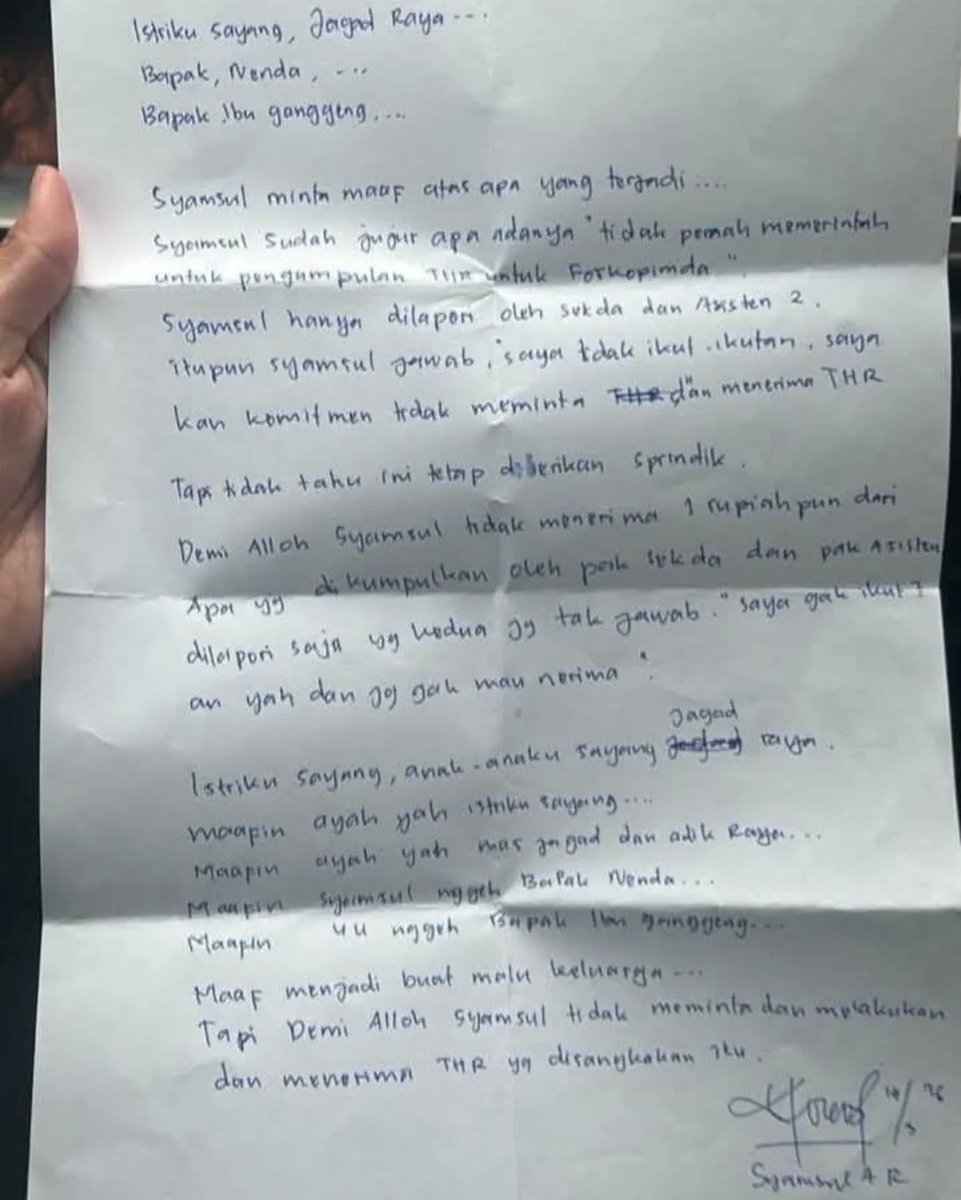 Istriku sayang, Jagad Raya ---
Bapak, Nenda, ...
Bapak Ibu ganggeng, ...
Syamsul minta maaf atas apa yang terjadi ....
Syamsul sudah jujur apa adanya "tidak pernah memerintah
untuk pengumpulan THR untuk Forkopimda".
Syamsul hanya dilapori oleh sekda dan Asisten 2.
itupun syamsul jawab, "saya tidak ikut-ikutan, saya
kan komitmen tidak meminta dan menerima THR
Tapi tidak tahu ini tetap diberikan sprindik.
Demi Alloh Syamsul tidak menerima 1 rupiah pun dari
Apa yg dikumpulkan oleh pak sekda dan pak Asisten
dilapori saja yg kedua jg tak jawab. "saya gak ikut2
an yah dan jg gak mau nerima".
Istriku sayang, anak-anaku sayang Jagad raya.
maapin ayah yah istriku sayang....
Maapin ayah yah mas jagad dan adik Raya...
Maapin syamsul nggeh Bapak Nenda...
Maapin nggeh Bapak Ibu ganggeng...
Maaf menjadi buat malu keluarga ---
Tapi Demi Alloh Syamsul tidak meminta dan melakukan
dan menerima THR yg disangkakan itu.
Syamsul A R